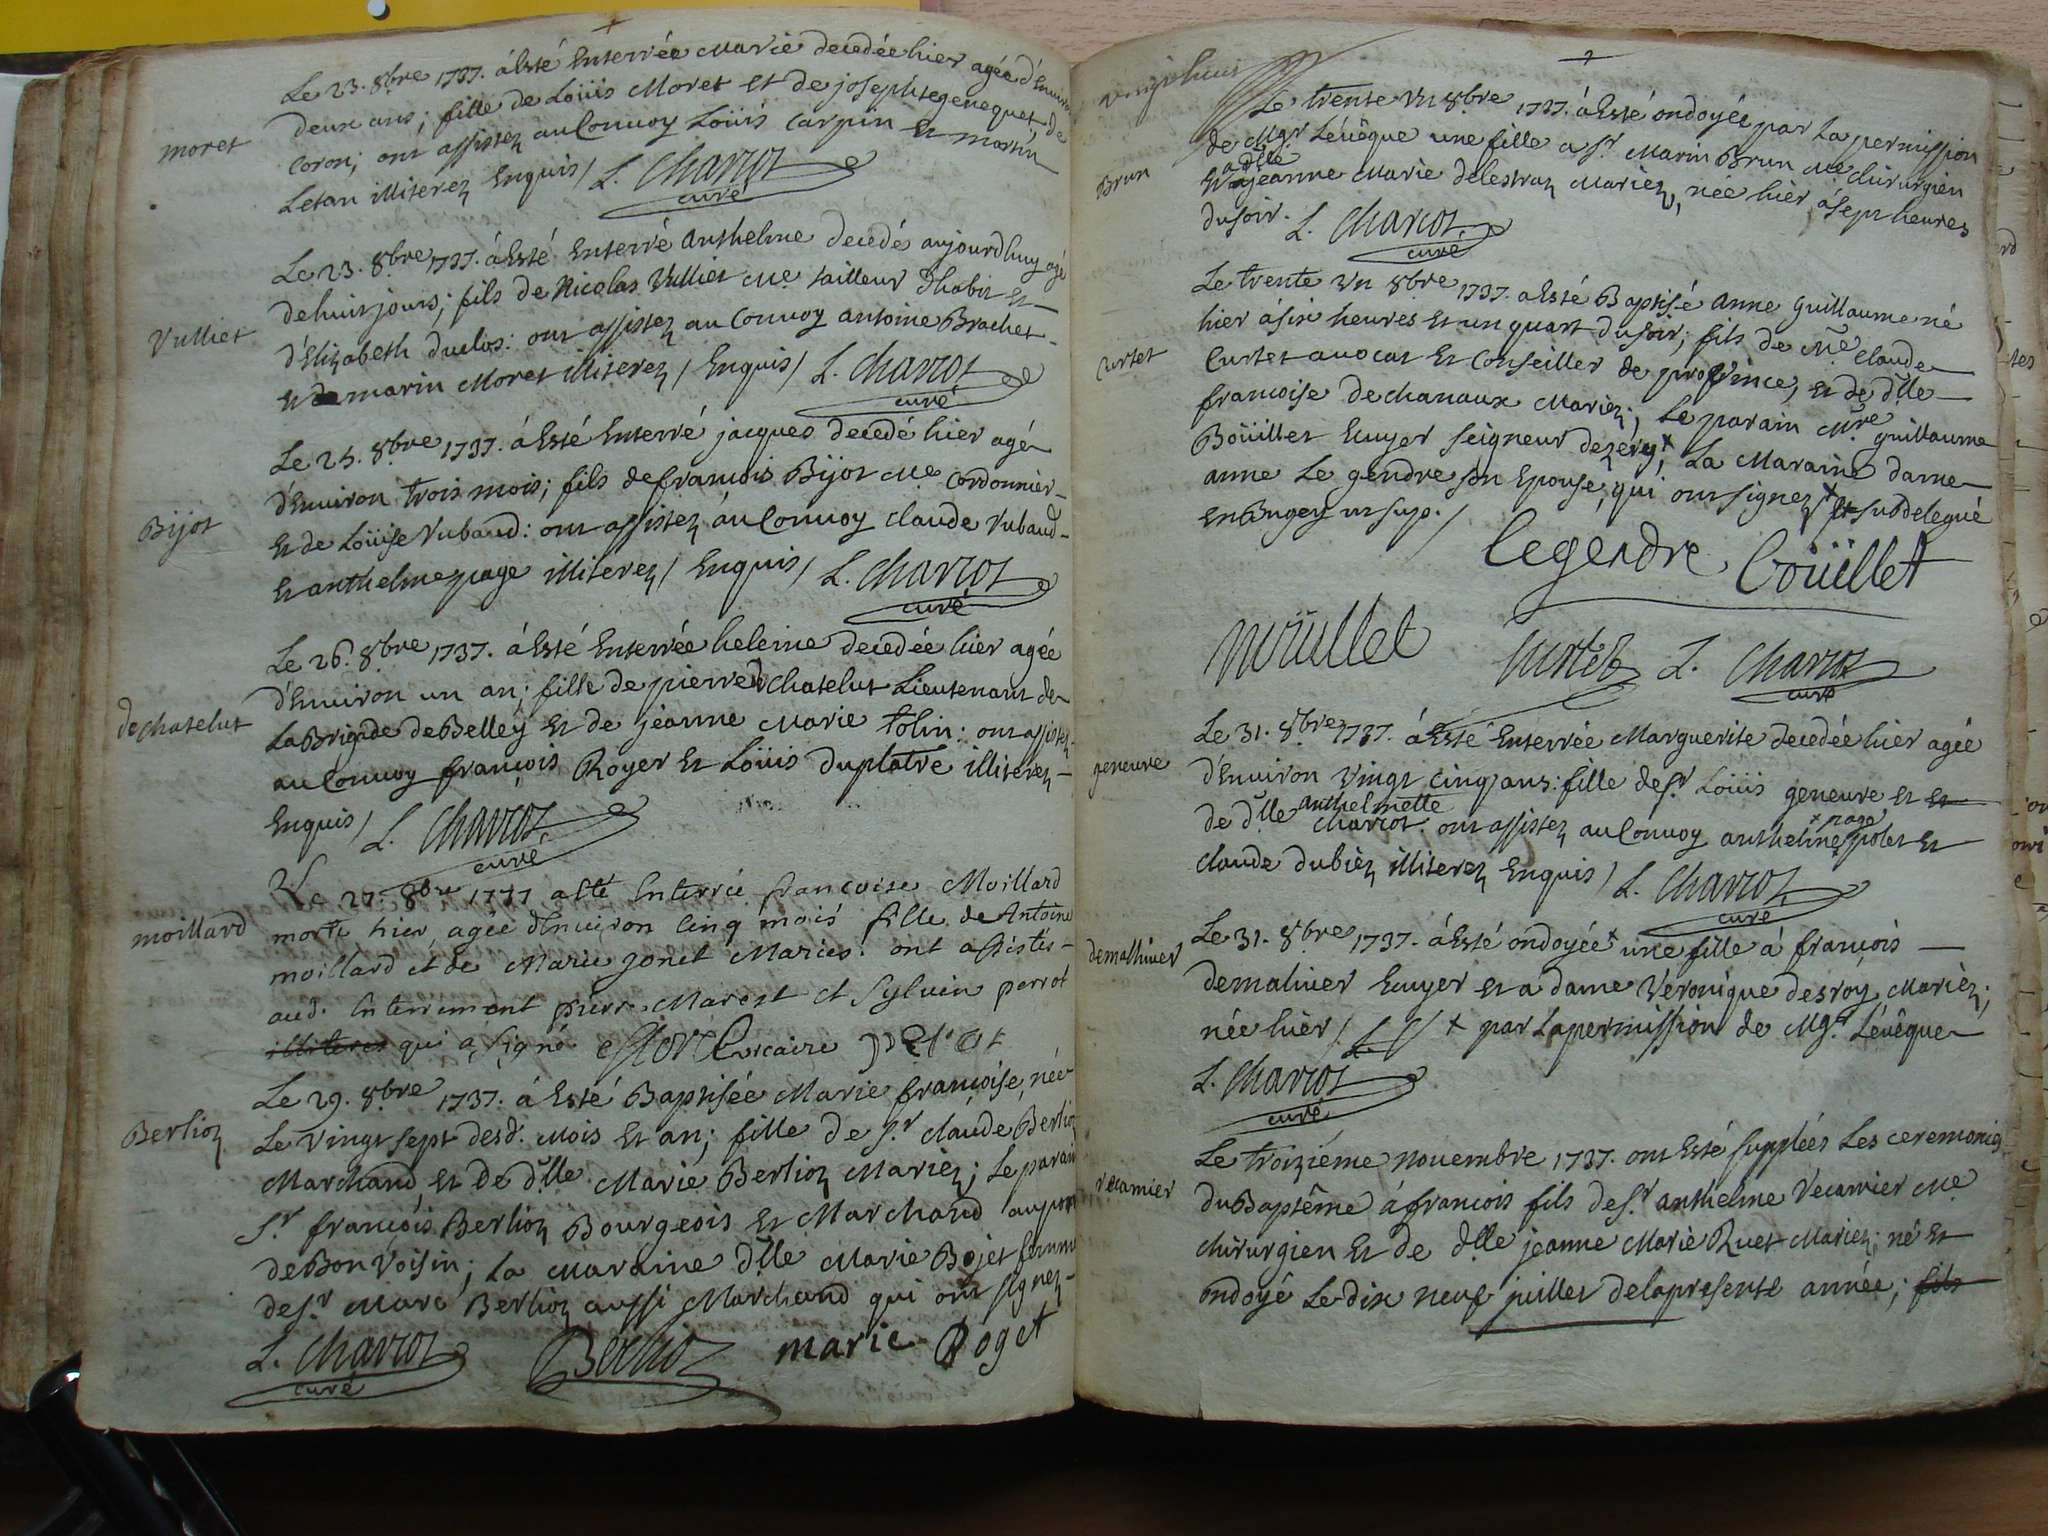 Le 23. 8bre 1737. à Esté Enterrée Marie decedée hier agée d'Environ
deux ans; fille de Loüis Moret et de josephte genequet de
moret
Coron; ont assistez au Convoy Loüis Carpin et martin
Letan illiterez Enquis / L. Charcot
curé
Le 23. 8bre 1737. à Esté Enterré anthelme decedé aujourdhuy agé
de huit jours; fils de Nicolas Vulliet Me. tailleur d'habit et
Vulliet
d'Elizabeth duclos: ont assistez au Convoy antoine Brachet
et de marin Moret illiterez / Enquis / L. Charcot
curé
Le 25. 8bre 1737. à Esté Enterré jacques decedé hier agé
d'Environ trois mois; fils de françois Bijot Me. Cordonnier
Bijot
et de Loüise Vubaud: ont assistez au Convoy Claude Vubaud
et anthelme page illiterez / Enquis / L. Charcot
curé
Le 26. 8bre 1737. à Esté Enterrée heleine decedée hier agée
d'Environ un an; fille de pierre dechatelut Lieutenant de
dechatelut
La Brigade de Belley et de jeanne Marie tolin: ont assistez
au Convoy françois Royer et Loüis duplatre illiterez
Enquis / L. Charcot
curé
Le 27. 8bre 1737 a été Enterrée françoise Moillard
moillard
morte hier agée d'Environ Cinq mois fille de Antoine
moillard et de Marie jonet Mariés: ont assistés
aud. Enterrement pierre Marest et Sylvin perrot
illiteres qui a signé vicaire
Le 29. 8bre 1737. à Esté Baptisée Marie françoise, née
Berlioz
Le vingt sept desd. Mois et an; fille de Sr. claude Berlioz
Marchand, et de dlle Marie Berlioz Mariez; Le parain
Sr. françois Berlioz Bourgeois et Marchand au pont
de Bon Voisin; La Maraine dlle Marie Bojet femme
de Sr. Marc Berlioz aussi Marchand qui ont signez
L. Charcot Berlioz marie Boget
curé
Le trente un 8bre 1737. à Esté ondoyée par La permission
de Mgr. Lévêque une fille a Sr. Marin Brun Me. chirurgien
Brun
et a dlle jeanne Marie delestraz Mariez, née hier à sept heures
du soir. L. Charcot
curé
Le trente un 8bre 1737. a Esté Baptisé anne guillaume né
hier à six heures et un quart du soir; fils de Me. claude
Curtet
Curtet avocat et Conseiller de province, et de dlle
françoise dechanaux Mariez; Le parain Mre guillaume
Boüillet Ecuyer seigneur de +; La Maraine dame
anne Le gendre son Epouse, qui ont signez + et subdelegué
en Bugey /
Legendre Boüillet
Curtet L. Charcot
curé
Le 31. 8bre 1737. à Esté Enterrée Marguerite decedée hier agée
geneuve
d'Environ vingt cinq ans: fille de Sr. Loüis geneuve et et
de dlle anthelmette Charcot: ont assistez au Convoy anthelme + page polet et
claude dubiez illiterez Enquis / L. Charcot
curé
Le 31. 8bre 1737. à Esté ondoyée + une fille à françois
demaliuer
demaliuer Ecuyer et a dame Véronique desroy Mariez;
née hier / + par La permission de Mgr. Lévêque
L. Charcot
curé
Le troizième novembre 1737. ont Esté suppléés Les ceremonies
recamier
du Baptême à françois fils de Sr. anthelme recamier Me.
chirurgien et de dlle jeanne Marie Ruet Mariez; né et
ondoyé Le dix neuf juillet de la presente année; fils